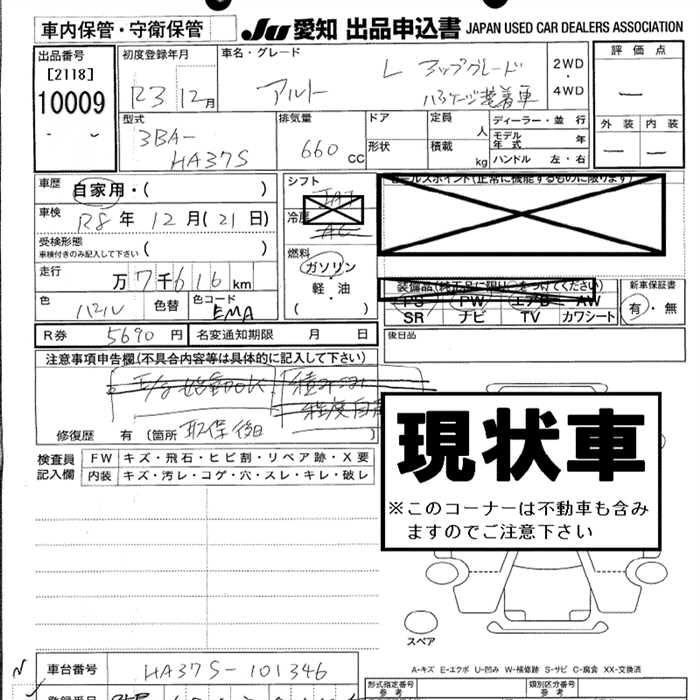 車内保管・守衛保管
JU 愛知 出品申込書 JAPAN USED CAR DEALERS ASSOCIATION
出品番号
[2118]
10009
初度登録年月
R3 12月
車名・グレード
アルト L アップグレード
パッケージ装着車
2WD
・
4WD
評価点
外装 内装
型式
3BA-
HA37S
排気量
660 CC
ドア
形状
定員 人
積載 kg
ディーラー・並 行
モデル年式 年
ハンドル 左・右
車歴 自家用・( )
車検 R8 年 12 月 (21 日)
受検形態
車検付きのみ記入して下さい ( )
走行 万 7 千 6 1 6 km
色 パール 色替 色コード EMA
シフト
冷房
燃料
ガソリン
軽・油
( )
セールスポイント(正常に機能するものに限ります)
装備品(純正品に限り○をつけてください)
PS PW エアB AW
SR ナビ TV カワシート
新車保証書
有・無
R券 5690 円 名変通知期限 月 日
後日品
注意事項申告欄(不具合内容等は具体的に記入して下さい)
修復歴 有 (箇所 取保後日 )
検査員
記入欄
FW キズ・飛石・ヒビ割・リペア跡・X要
内装 キズ・汚レ・コゲ・穴・スレ・キレ・破レ
現状車
※このコーナーは不動車も含み
ますのでご注意下さい
スペア
A-キズ E-エクボ U-凹み W-補修跡 S-サビ C-腐食 XX-交換済
車台番号 HA37S-101346
型式指定番号
参考
類別区分番号
参考
登録番号